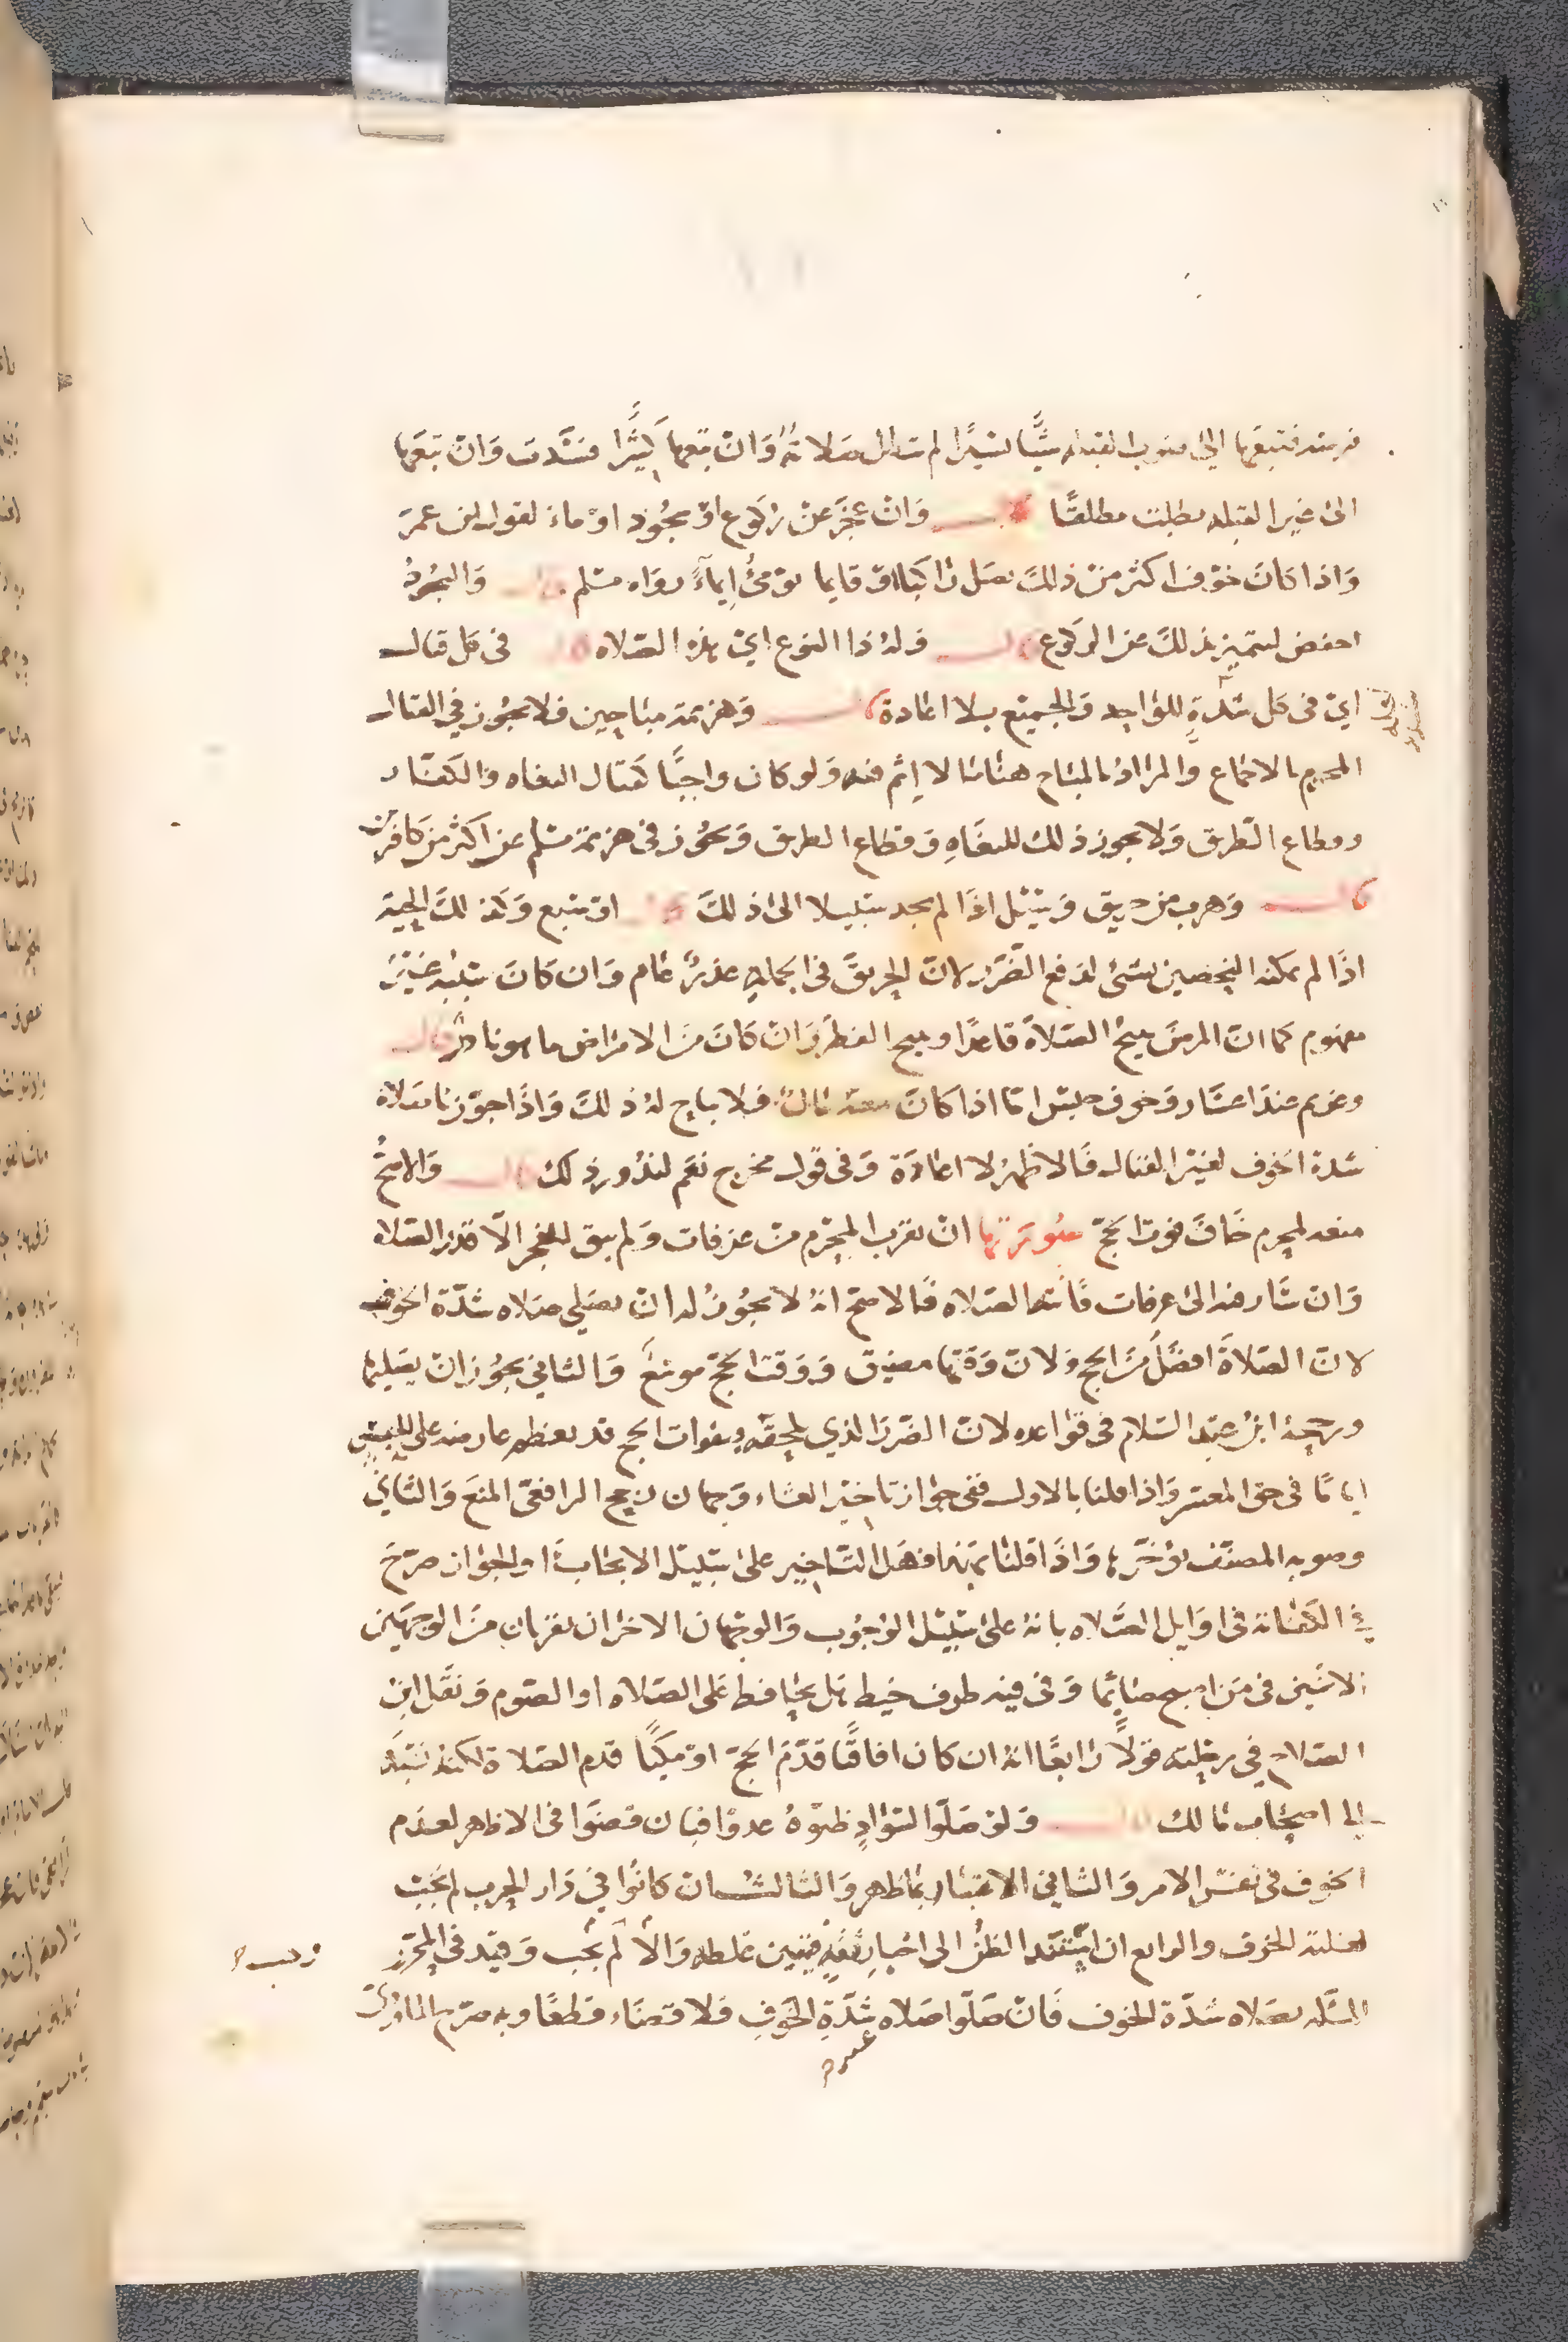 فرسه فتبعها الى صوب القبله شيًا يسيرًا لم تبطل صلاته وان تبعها كثيرًا فسدت وان تبعها
الى غير القبله بطلت مطلقًا قال وان عجز عن ركوع او سجود اوماء لقول ابن عمر
واذا كان خوف اكثر من ذلك يصل راكبا او قايما يومئ ايماءً رواه مسلم قال والسجود
اخفض ليتميز بذلك عن الركوع قال وله ذا النوع اي هذه الصلاه قال في كل قتال
اي في كل شدة للواحد والجميع بلا اعادة قال وهزيمة مباحين فلا يجوز في القتال
المحرم بالاجماع والمراد بالمباح هنا ما لا اثم فيه ولو كان واجبًا كقتال البغاه والكفار
وقطاع الطريق ولا يجوز ذلك للبغاه وقطاع الطريق ويجوز في هزيمة مسلم عن اكثر من كافرين
قال وهرب من حريق وسيل اذا لم يجد سبيلا الى ذلك قال او سبع وكذلك الحية
اذا لم يمكنه التحصين بشئ لدفع الضرر لان الحريق في الجملة عذر عام وان كان سببه غير
معهوم كما ان المرض يبيح الصلاة قاعدًا ويبيح الفطر وان كان من الامراض ما هو نادر قال
وغريم عند اعسار وخوف حبس اما اذا كان معه مال فلا يباح له ذلك واذا جوزنا صلاة
شدة الخوف لغير القتال فالاظهر لا اعادة وفي قول مخرج نعم لندور ذلك قال والاصح
منعه لمحرم خاف فوت الحج صورتها ان يقرب المحرم من عرفات ولم يبق للفجر الا قدر الصلاه
وان سار فيه الى عرفات فاتته الصلاه فالاصح انه لا يجوز له ان يصلي صلاه شدة الخوف
لان الصلاة افضل من الحج ولان وقتها مضيق ووقت الحج موسع والثاني يجوز ان يصليها
ورجحه ابن عبد السلام في قواعده لان الضرر الذي يلحقه بفوات الحج قد يعظم عارضه على الحبس
اياما في حق المعسر واذا قلنا بالاول ففي جواز تاخير العشاء وجهان رجح الرافعي المنع والثاني
وصوبه المصنف يؤخر واذا قلنا به فهل التاخير على سبيل الايجاب او الجواز صرح
في الكفاية في اوايل الصلاه بانه على سبيل الوجوب والوجهان الاخران يقربان من الوجهين
الاثنين في من اصبح صائما وفي فيه طرف خيط هل يحافظ على الصلاه او الصوم ونقل ابن
الصلاح في رحلته قولًا رابعًا انه ان كان افاقيا قدم الحج او مكيًا قدم الصلاة لكنه نسبه
الى اصحاب مالك قال ولو صلوا لسوادٍ ظنوه عدوًا فبان قضوا في الاظهر لعدم
الخوف في نفس الامر والثاني الاعتبار بما ظهر والثالث ان كانوا في دار الحرب لم يجب
لغلبة الخوف والرابع ان استند الظن الى اخبار ثقة فتبين غلطه والا لم يجب وقيد في المحرر
المسله بصلاه شدة الخوف فان صلوا صلاه شدة الخوف فلا قضاء قطعًا وبه صرح الماوردي